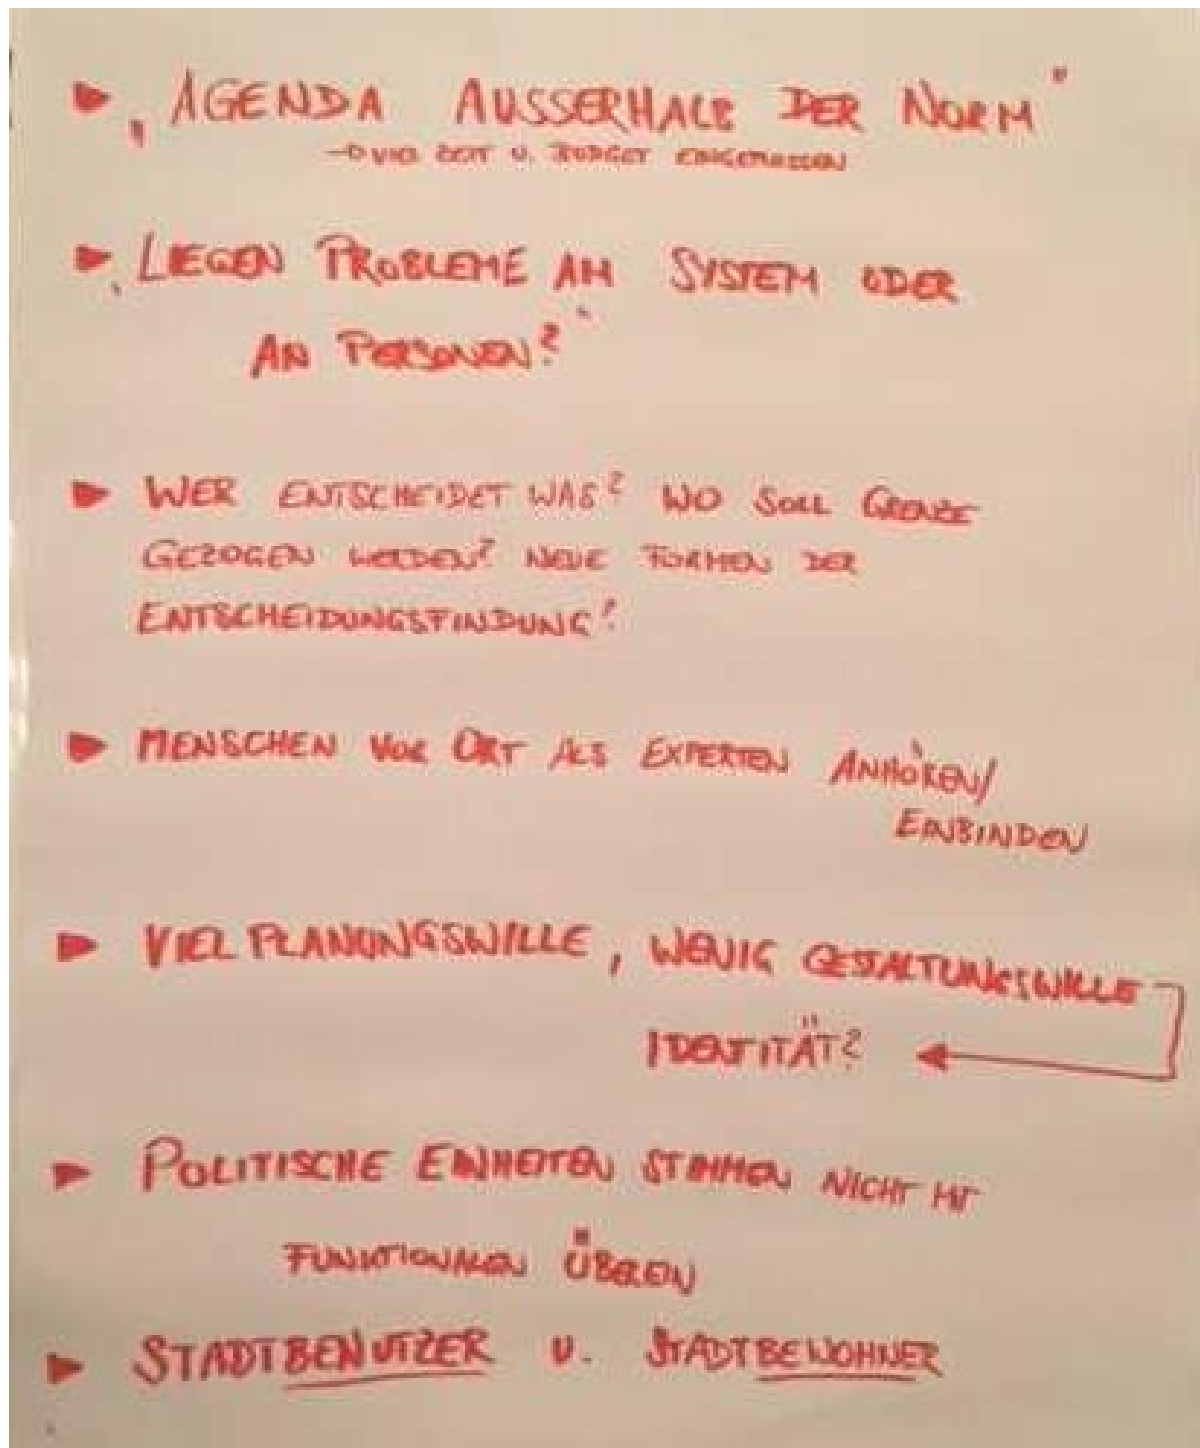 „AGENDA AUSSERHALB DER NORM"
→ VIEL ZEIT U. BUDGET EINGEFLOSSEN
„LIEGEN PROBLEME AM SYSTEM ODER
AN PERSONEN?"
WER ENTSCHEIDET WAS? WO SOLL GRENZE
GEZOGEN WERDEN? NEUE FORMEN DER
ENTSCHEIDUNGSFINDUNG?
MENSCHEN VOR ORT ALS EXPERTEN ANHÖREN/
EINBINDEN
VIEL PLANUNGSWILLE, WENIG GESTALTUNGSWILLE
IDENTITÄT?
POLITISCHE EINHEITEN STIMMEN NICHT MIT
FUNKTIONALEN ÜBEREIN
STADTBENUTZER U. STADTBEWOHNER